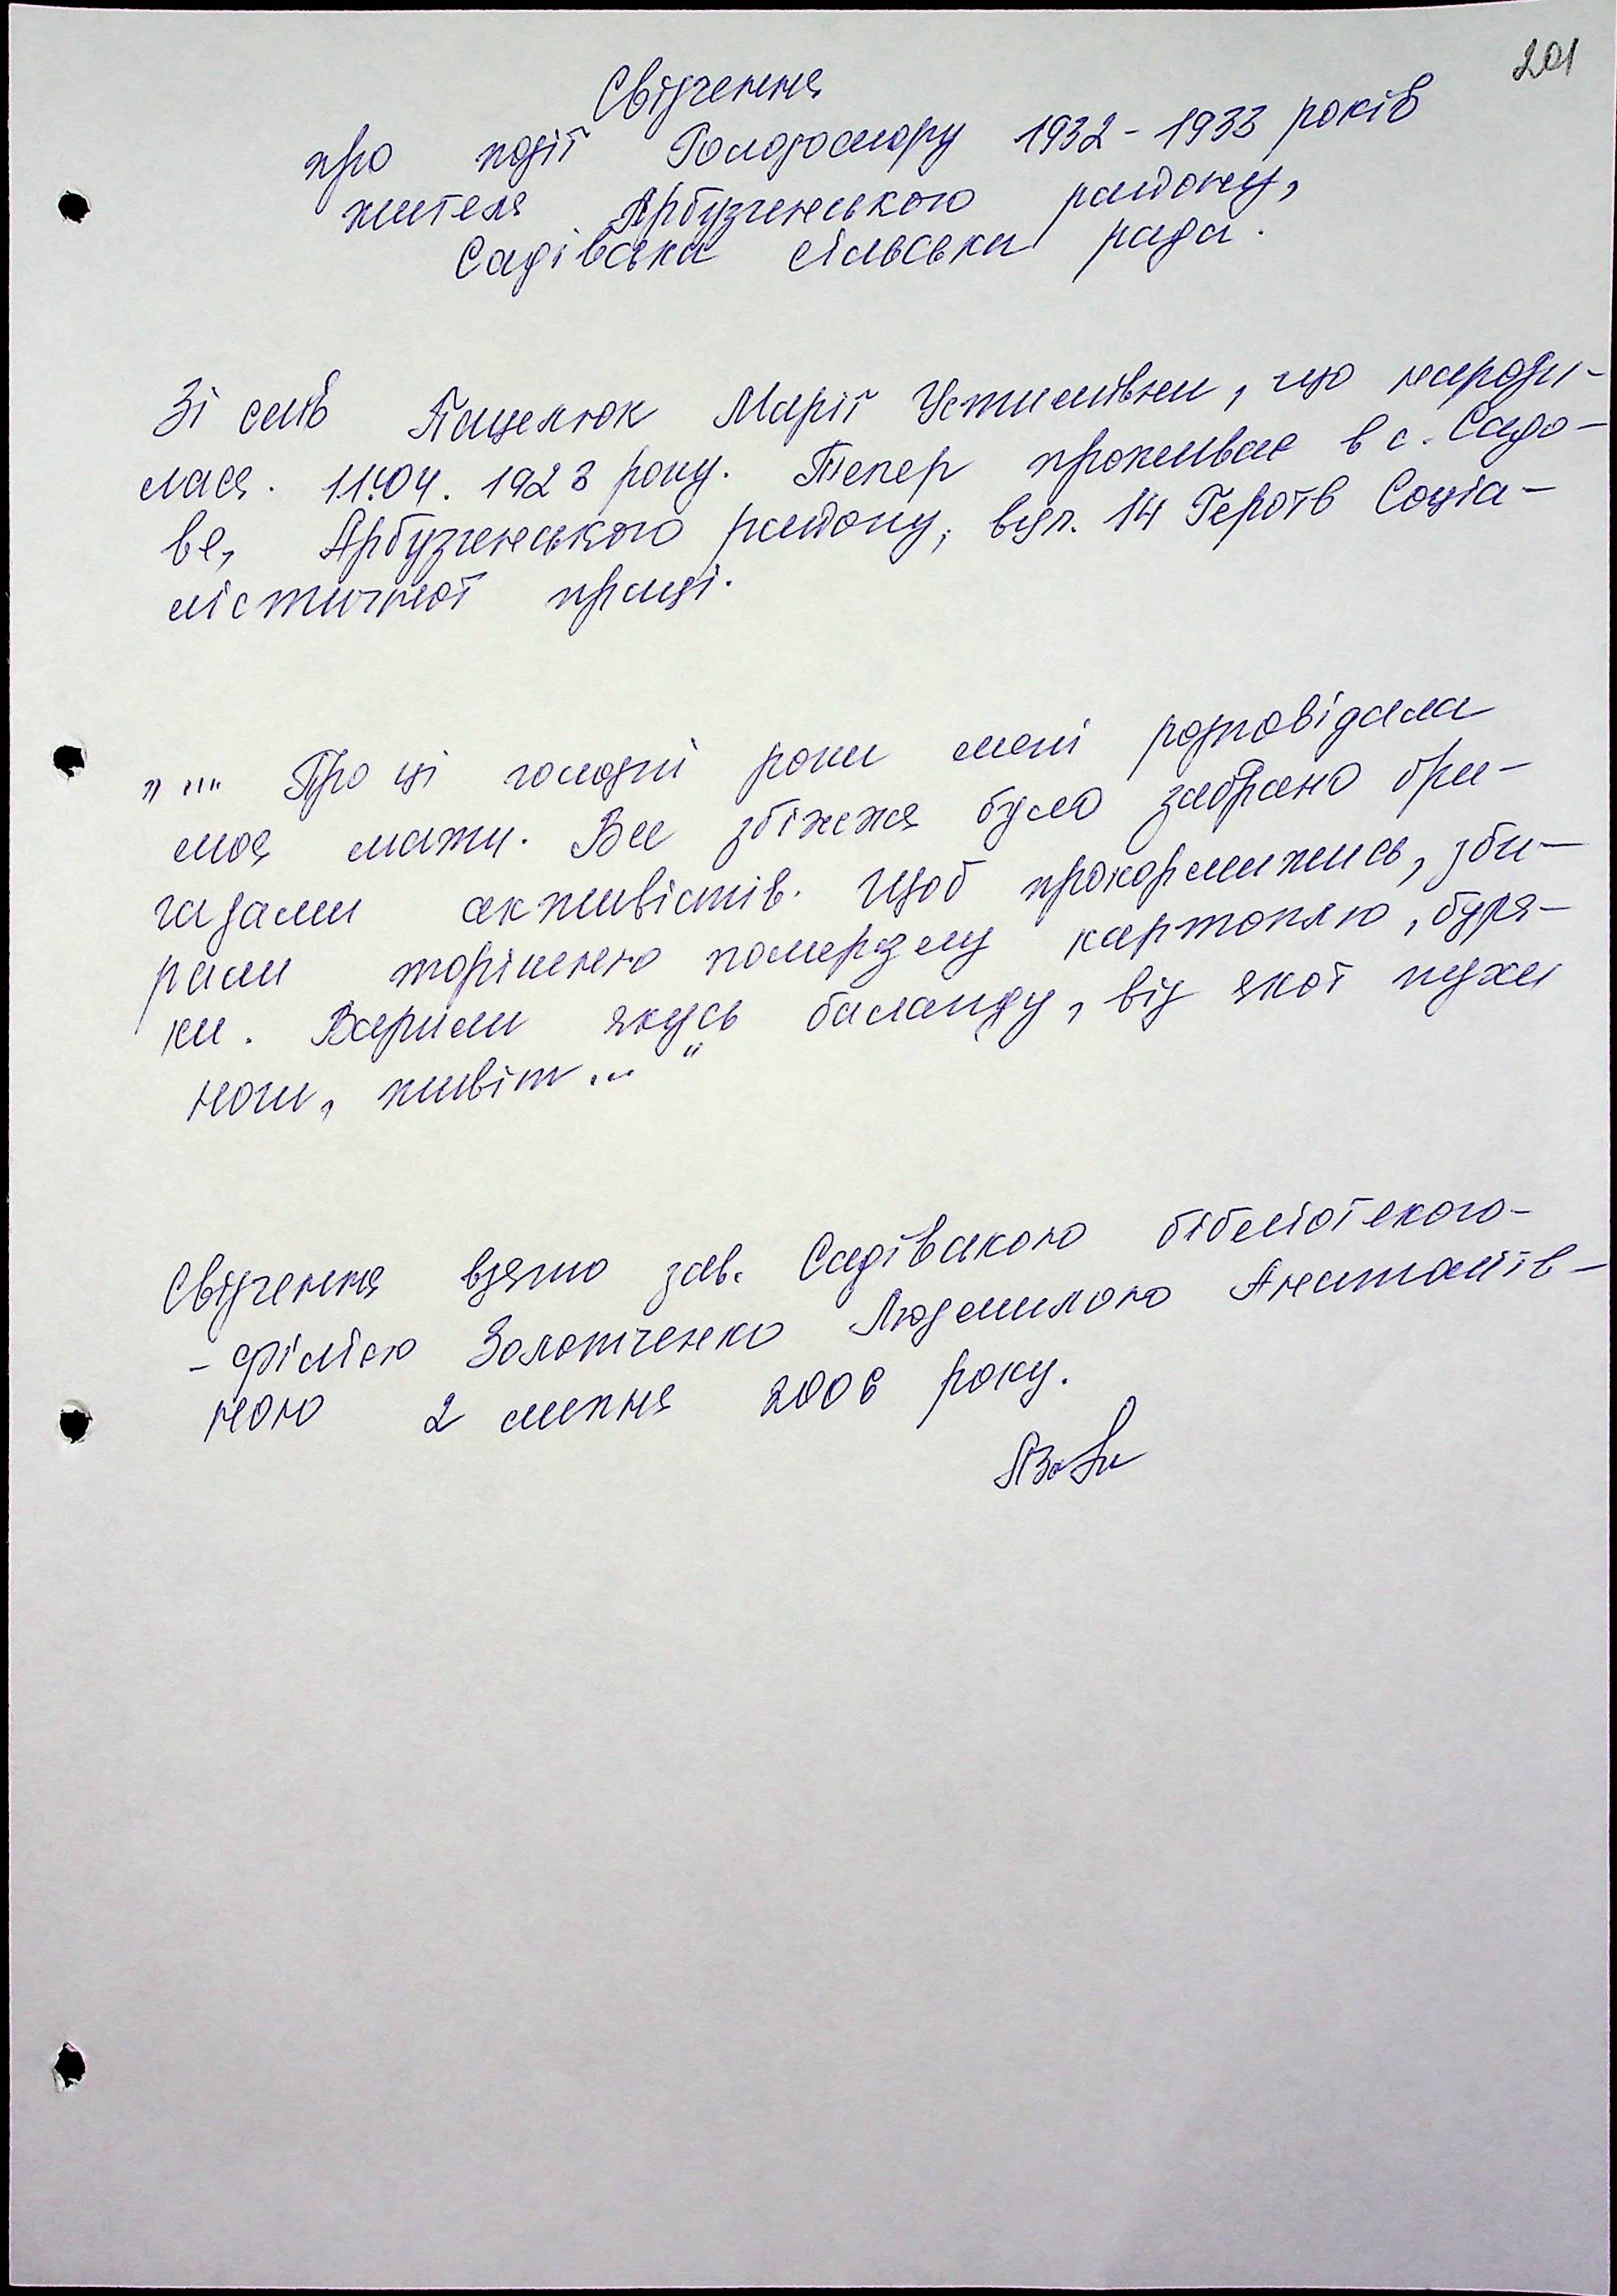 201
Свідчення
про події Голодомору 1932-1933 років
жителя Арбузинського району,
Садівська сільська рада.
Зі слів Пацелюк Марії Устимівни, що народи-
лася. 11.04. 1923 року. Тепер проживає в с. Садо-
ве, Арбузинського району, вул. 14 Героїв Соціа-
лістичної праці.
"... Про ці голодні роки мені розповідала
моя мати. Все збіжжя було забрано бри-
гадами активістів. Щоб прокормитись, зби-
рали торішню померзлу картоплю, буря-
ки. Варили якусь баланду, від якої пухли
ноги, живіт..."
Свідчення взято зав. Садівською бібліотекою-
- філією Золотченко Людмилою Анатоліїв-
ною 2 липня 2006 року.